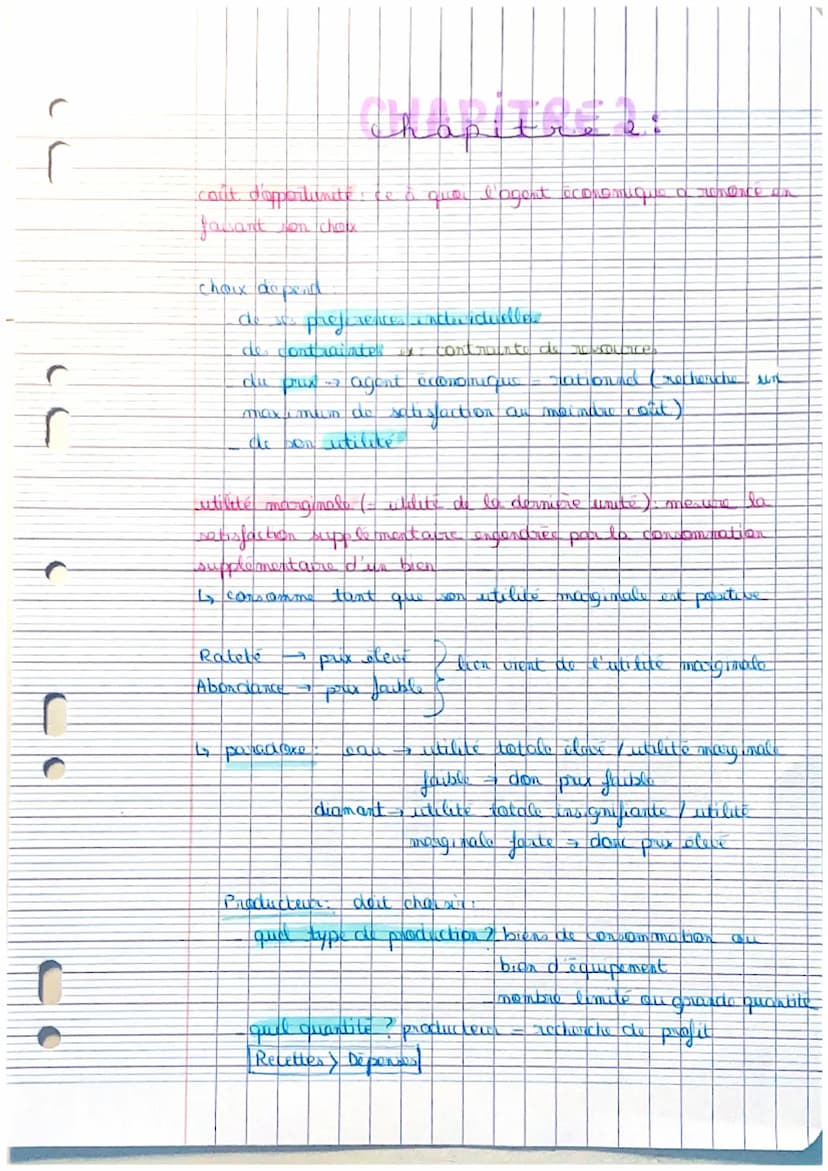 CHAPITRE 2 :
chapitre 2 :
coût d'opportunité : ce à quoi l'agent économique a renoncé en
faisant son choix
choix dépend :
- de ses préférences individuelles
- des contraintes ex : contrainte de ressources
- du prix → agent économique = rationnel (recherche un
maximum de satisfaction au moindre coût)
- de son utilité
utilité marginale (= utilité de la dernière unité) : mesure la
satisfaction supplémentaire engendrée par la consommation
supplémentaire d'un bien
↳ consomme tant que son utilité marginale est positive
Rareté → prix élevé } lien vient de l'utilité marginale
Abondance → prix faible
↳ paradoxe : eau → utilité totale élevé / utilité marginale
faible → don prix faible
diamant → utilité totale insignifiante / utilité
marginale forte → donc prix élevé
Producteur : doit choisir :
- quel type de production ? biens de consommation ou
bien d'équipement
nombre limité ou grande quantité
- quel quantité ? producteur = recherche de profit
Recettes > Dépenses